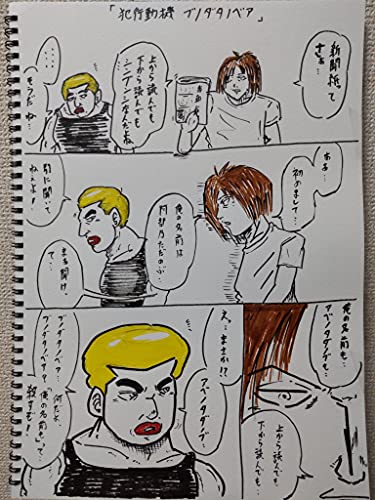 「犯行動機 ブノダタノベア」
新聞紙て
さぁ…
上から読んでも
下から読んでも
シンブンシなんだよね
……
そうだね…
あぁ…
初めまして…
俺の名前は
阿部乃ただのぶ…
別に聞いて
ねぇよ！
まぁ聞け。
て…
俺の名前も…
アベノタダノブ…
上から読んでも
下から読んでも…
え…まさか!?
アベノタダノブ…
ブノダタノベア…
ブノダタノベア？
何だよ
俺の名前って…
殺すぞ！